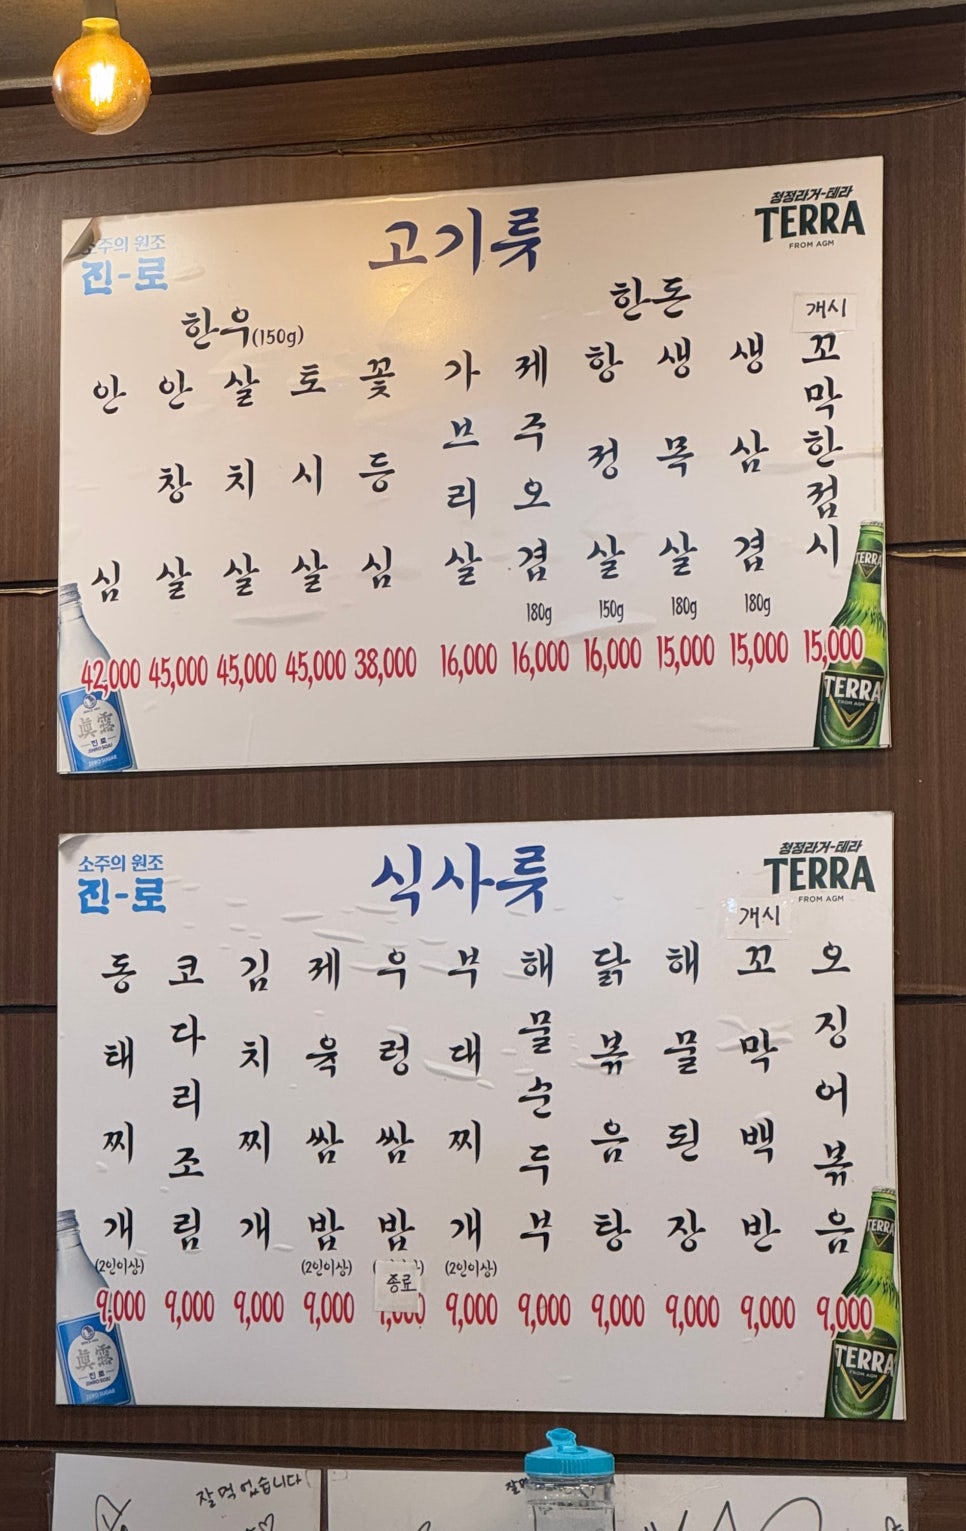 소주의 원조
진-로
고기류
청정라거-테라
TERRA
FROM AGM
한우(150g)
한돈
개시
안심 42,000
안창살 45,000
살치살 45,000
토시살 45,000
꽃등심 38,000
가브리살 16,000
제주오겹 180g 16,000
항정살 150g 16,000
생목살 180g 15,000
생삼겹 180g 15,000
꼬막한접시 15,000
眞露
진로
TERRA
TERRA
FROM AGM
소주의 원조
진-로
식사류
청정라거-테라
TERRA
FROM AGM
개시
동태찌개 (2인이상) 9,000
코다리조림 9,000
김치찌개 9,000
제육쌈밥 (2인이상) 9,000
우렁쌈밥 종료
부대찌개 (2인이상) 9,000
해물순두부 9,000
닭볶음탕 9,000
해물된장 9,000
꼬막백반 9,000
오징어볶음 9,000
眞露
진로
TERRA
TERRA
FROM AGM
잘 먹었습니다
잘먹